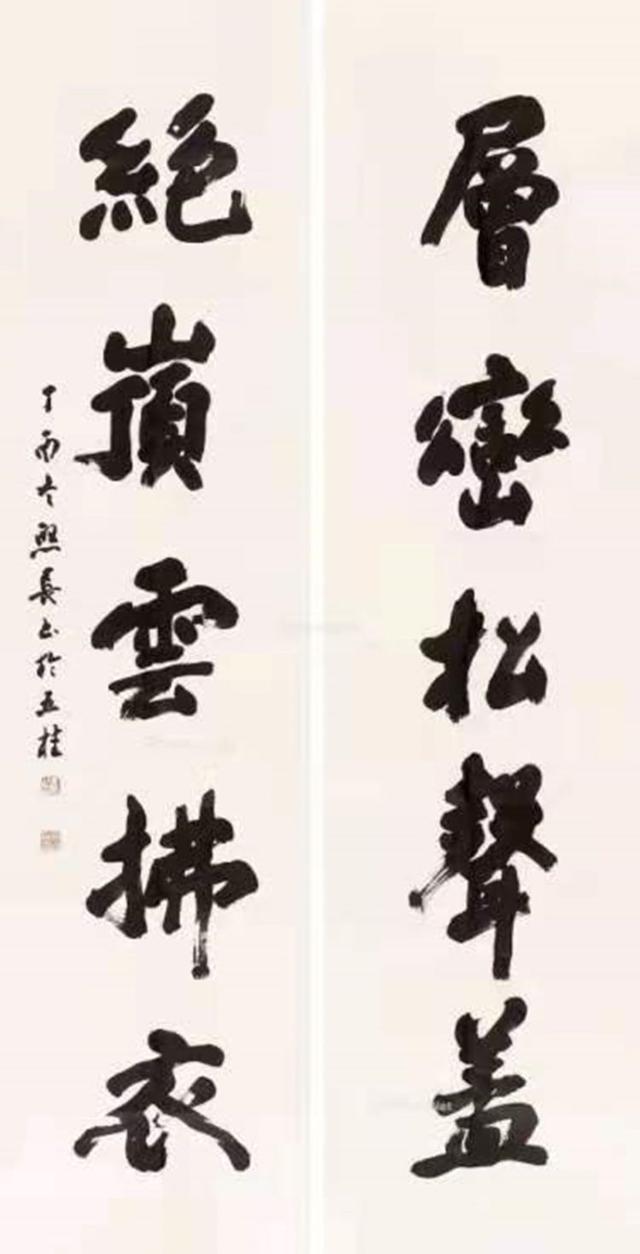 層巒松聲盖
絕嶺雲拂衣
丁酉冬熙長书於五桂